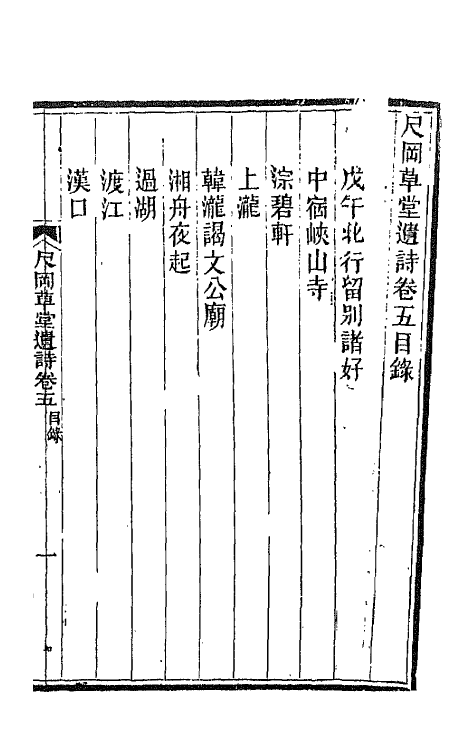 尺岡草堂遺詩卷五目錄
戊午北行留別諸好
中宿峽山寺
淙碧軒
上瀧
韓瀧謁文公廟
湘舟夜起
過湖
渡江
漢口
尺岡草堂遺詩卷五 目錄 一